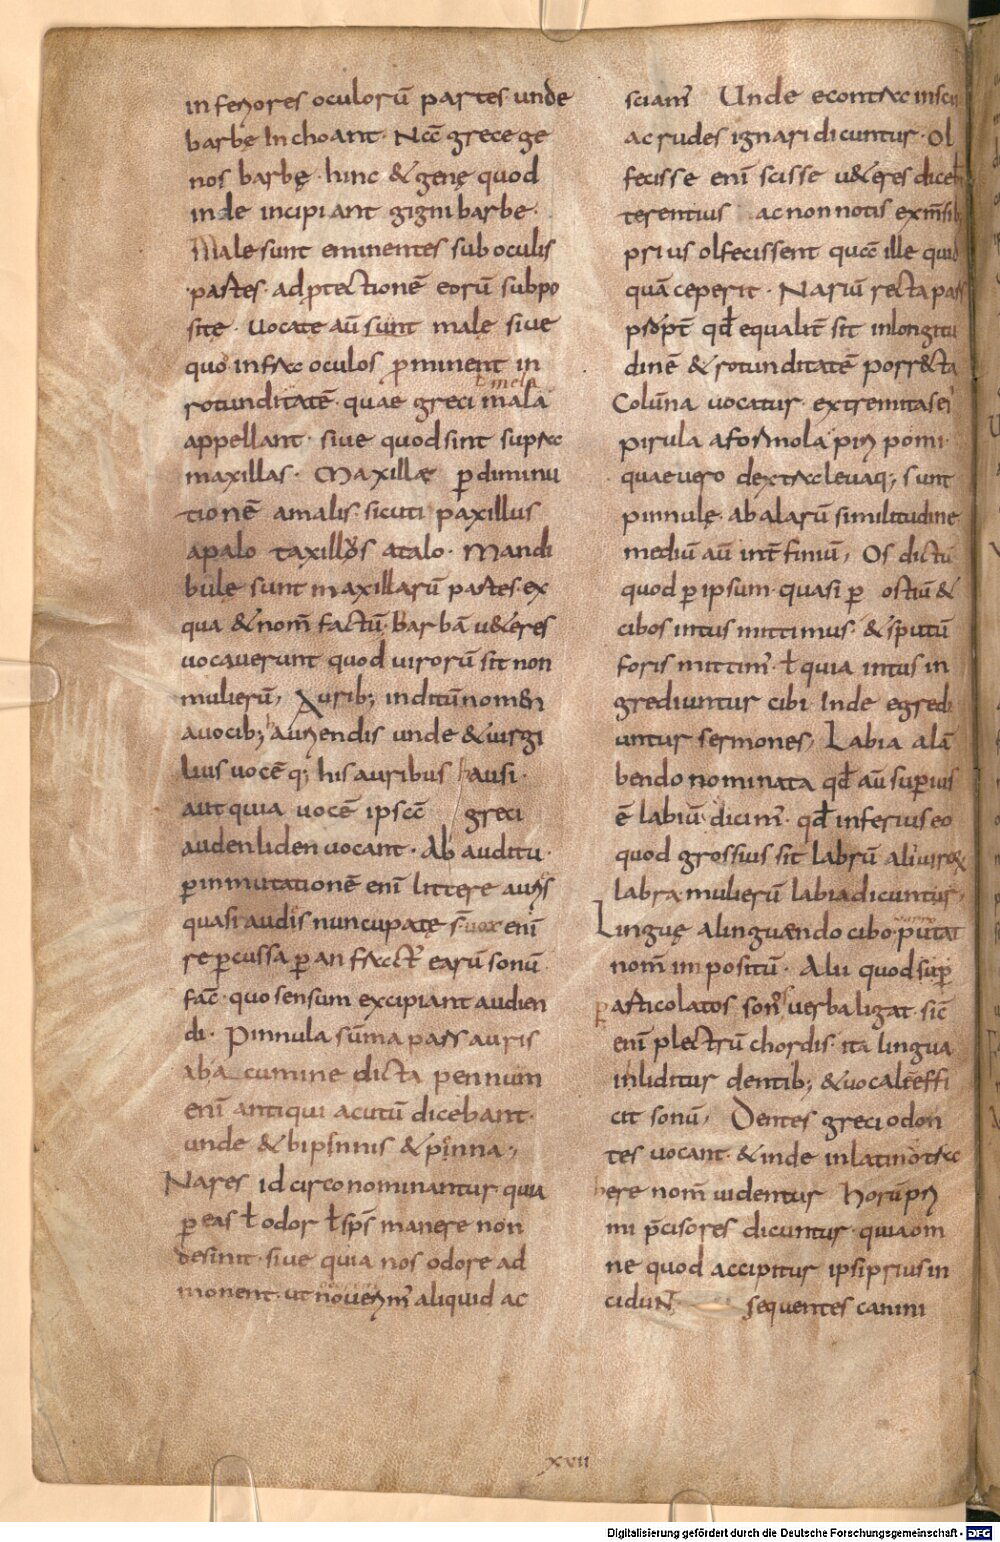 inferiores oculorū partes unde
barbę Inchoant. Nā grece ge
nos barbę. hinc & genę quod
inde incipiant gigni barbe.
Male sunt eminentes sub oculis
partes. ad ꝓtectionē eorū subpo
sitę. Uocate aū sunt male siue
quo infra oculos ꝓminent in
ł mela
rotunditatē. quae greci mala
appellant. siue quod sint supra
maxillas. Maxillae ꝑ diminu
tionē amalis. sicuti paxillus
apalo taxillos atalo. Mandi
bulę sunt maxillarū partes. ex
qua & nom̄ factū. barbā u&eres
uocauerunt quod uirorū sit non
mulierū, Aurib; inditū nomen
auocib; auriendis unde & uirgi
lius uocē q; his auribus hausi.
aut quia uocē ipsā greci
audenliden uocant. Ab auditu.
ꝑinmutationē eni littere aures
quasi audis nuncupatę s̄ uox eni
reꝑcussa ꝑ anfractꝰ earū sonū
fac̄. quo sensum excipiant audien
di. Pinnula sūma pars auris
aba cumine dicta pennum
eni antiqui acutū dicebant.
unde & bipinnis & pinna,
Nares idcirco nominantur quia
ꝑ eas ł odor ł sp̄s manere non
desinit. siue quia nos odore ad
monent. ut nouerimꝰ aliquid ac
sciamꝰ Unde econtra inscii
ac rudes ignari dicuntur. Ol
fecisse eni scisse u&eres dicebt̄
terentius ac non notis ex m̄sib
prius olfecissent quā ille quid
quā ceperit. Nariū recta pars
ꝓpt̄ qd̄ equalit̄ sit inlongitu
dinē & rotunditatē porrecta
Colūna uocatur. extremitas eiꝰ
pirula aformola piri pomi.
quae uero dextra leuaq; sunt
pinnulę. ab alarū similitudine
mediū aū int̄finiū, Os dictū
quod ꝑ ipsum. quasi ꝑ ostiū &
cibos intus mittimus. & sputū
foris mittimꝰ. ł quia intus in
grediuntur cibi Inde egredi
untur sermones, Labia alā
bendo nominata qd̄ aū superius
ē labiū dicimꝰ. qd̄ inferius eo
quod grossius sit labrū alii uiroꝝ
labra. mulierū labia dicuntur,
uarro
Linguę alinguendo cibo putat
nom̄ impositū. Alii quod sup
ꝑ articolatos sonꝰ uerba ligat. sic̄
eni plectrū chordis. ita lingua
inliditur dentib; & uocalē effi
cit sonū, Dentes greci odon
tes uocant. & inde inlatino tra
here nom̄ uidentur Horū pri
mi p̄cisores dicuntur. quia om
ne quod accipitur ipsi prius in
cidunt̄ sequentes canini
xvii
Digitalisierung gefördert durch die Deutsche Forschungsgemeinschaft - DFG